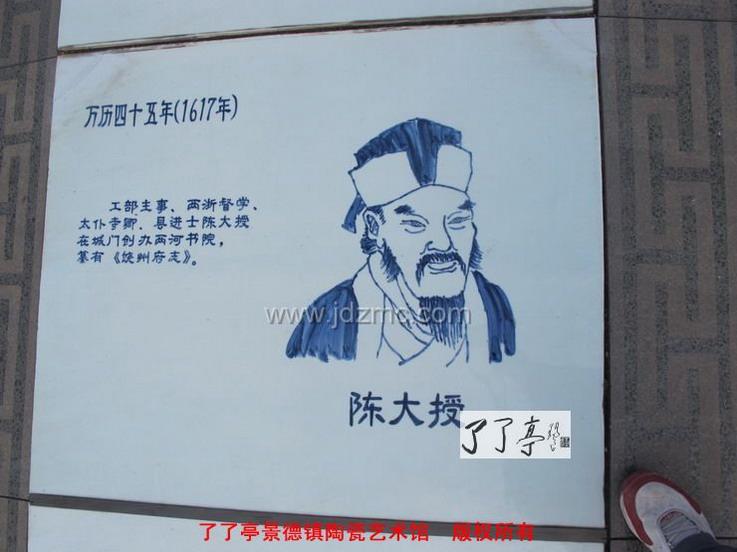 万历四十五年(1617年)
工部主事、两浙督学、
太仆寺卿、县进士陈大授
在城门创办两河书院，
纂有《饶州府志》。
www.jdzmc.com
陈大授
了了亭
了了亭景德镇陶瓷艺术馆 版权所有